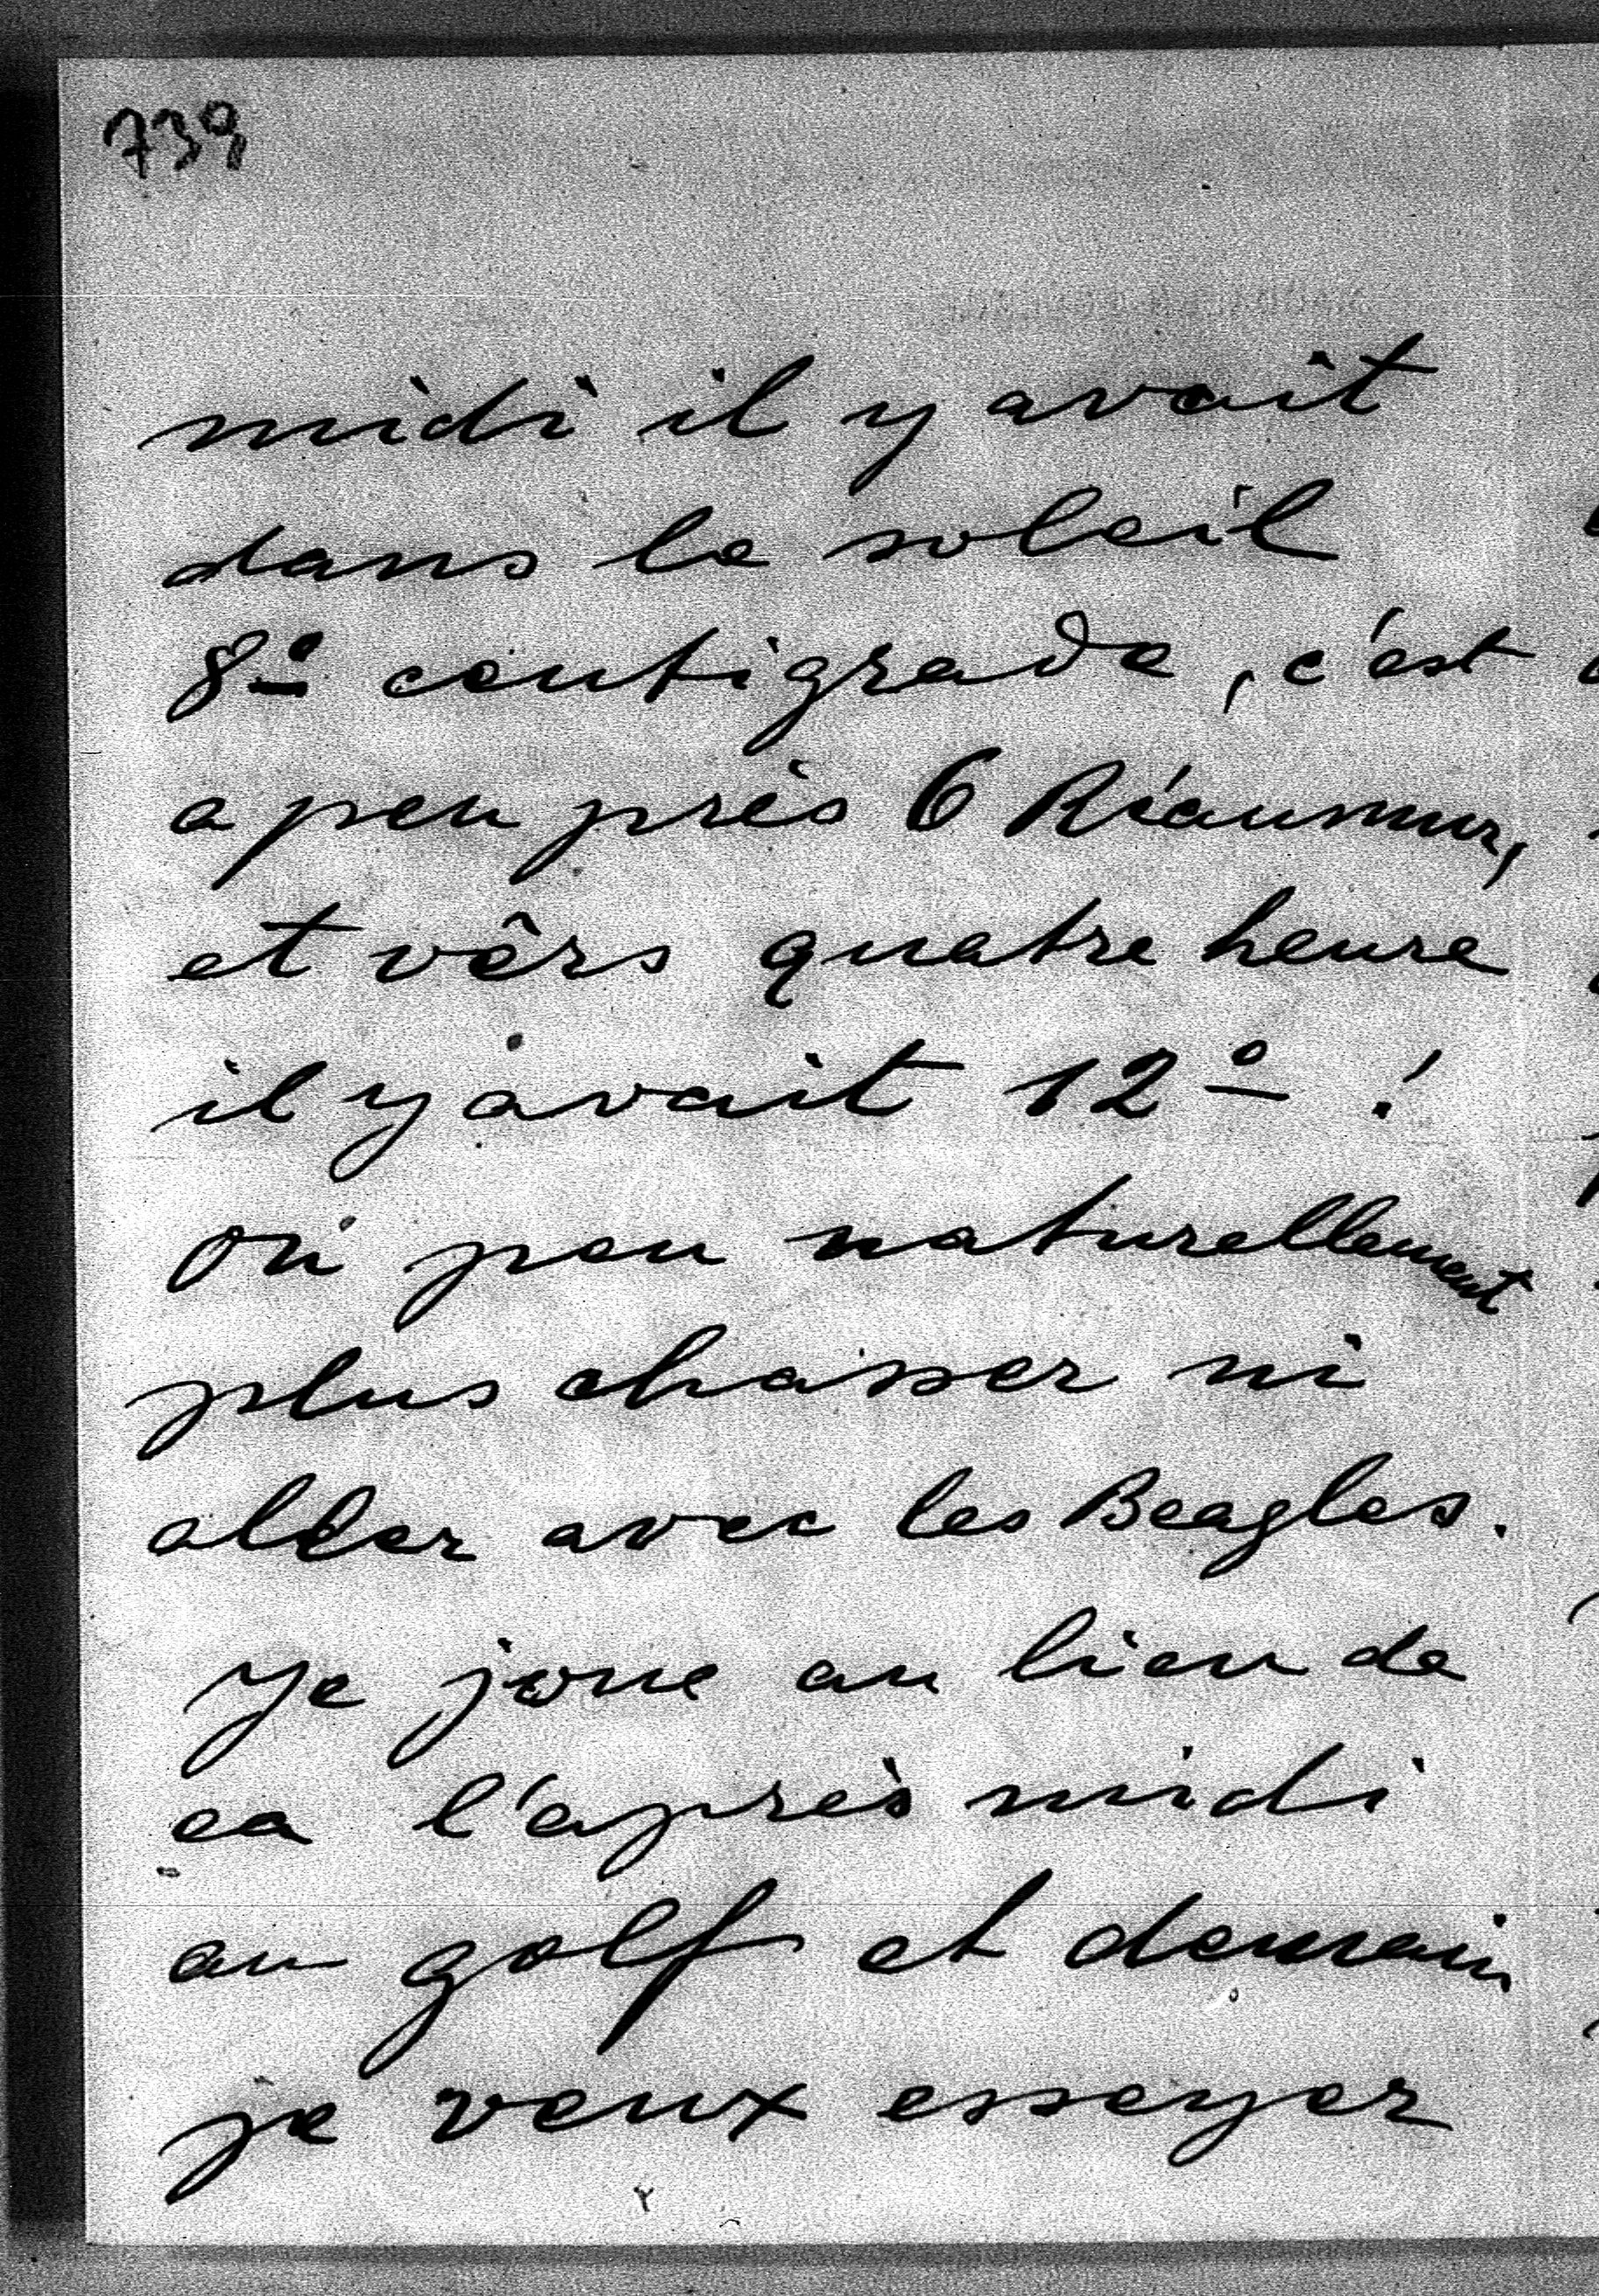 739
midi il y avait
dans le soleil
8° centigrade, c'est
a peu près 6 Réaumur,
et vêrs quatre heure
il y avait 12° !
On peu naturellement
plus chasser ni
aller avec les Beagles.
Je joue au lieu de
ça l'après midi
au golf et demain
je veux essayer